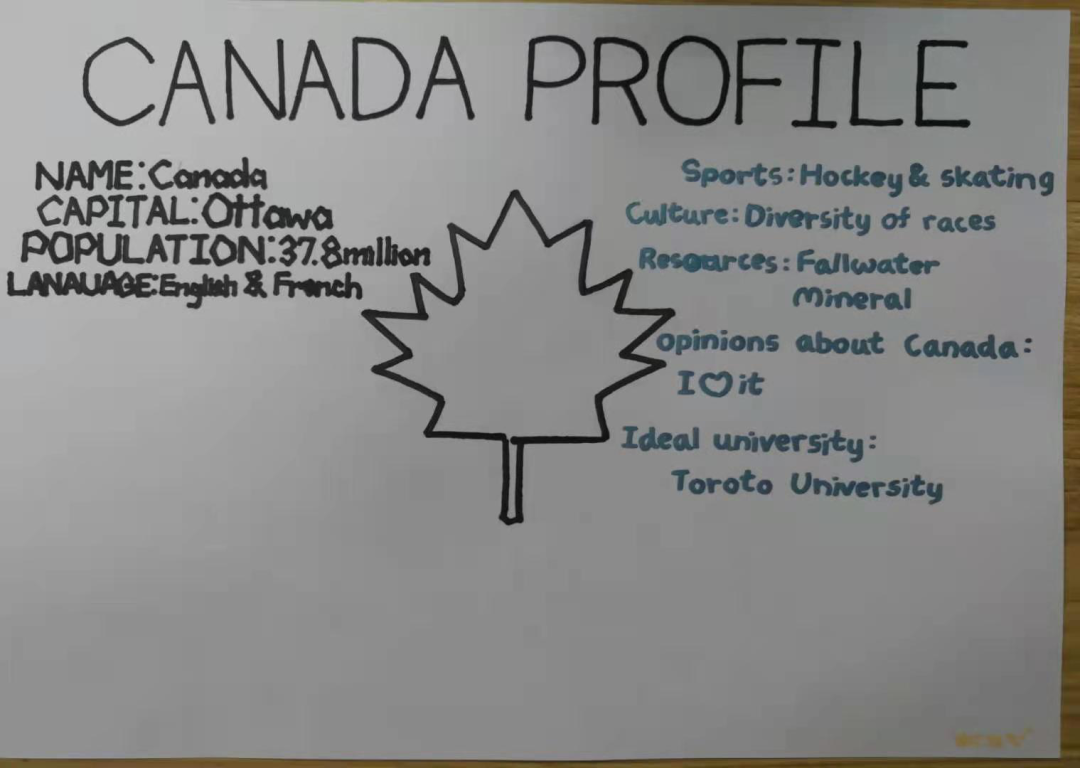 CANADA PROFILE
NAME:Canada
CAPITAL:Ottawa
POPULATION:37.8million
LANAUAGE:English & French
Sports:Hockey & skating
Culture:Diversity of races
Resources:Fallwater
Mineral
opinions about Canada:
I♡it
Ideal university:
Toroto University